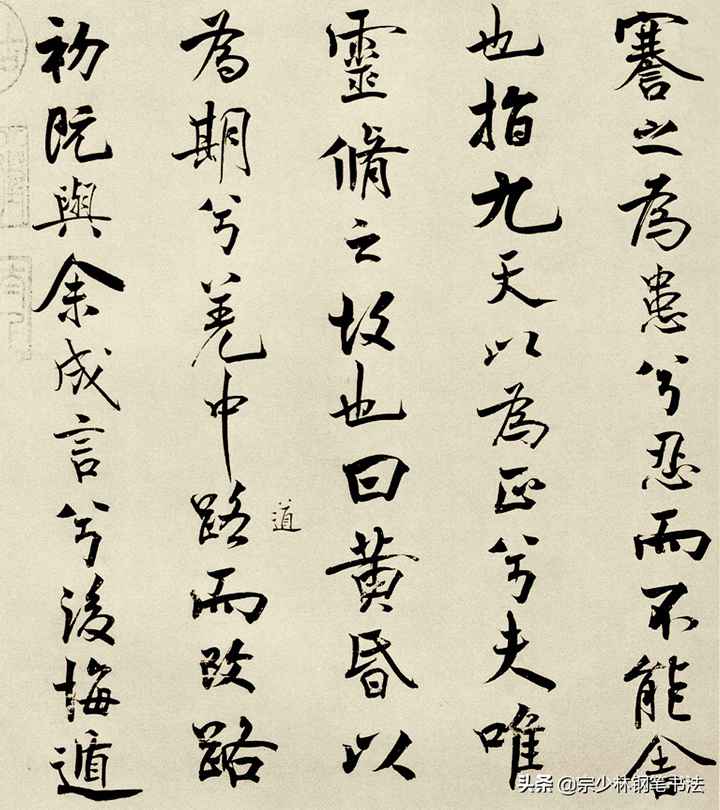 謇之為患兮忍而不能舍
也指九天以為正兮夫唯
靈脩之故也曰黃昏以
為期兮羌中路而改路
道
初既與余成言兮後悔遁
头条 @宗少林钢笔书法